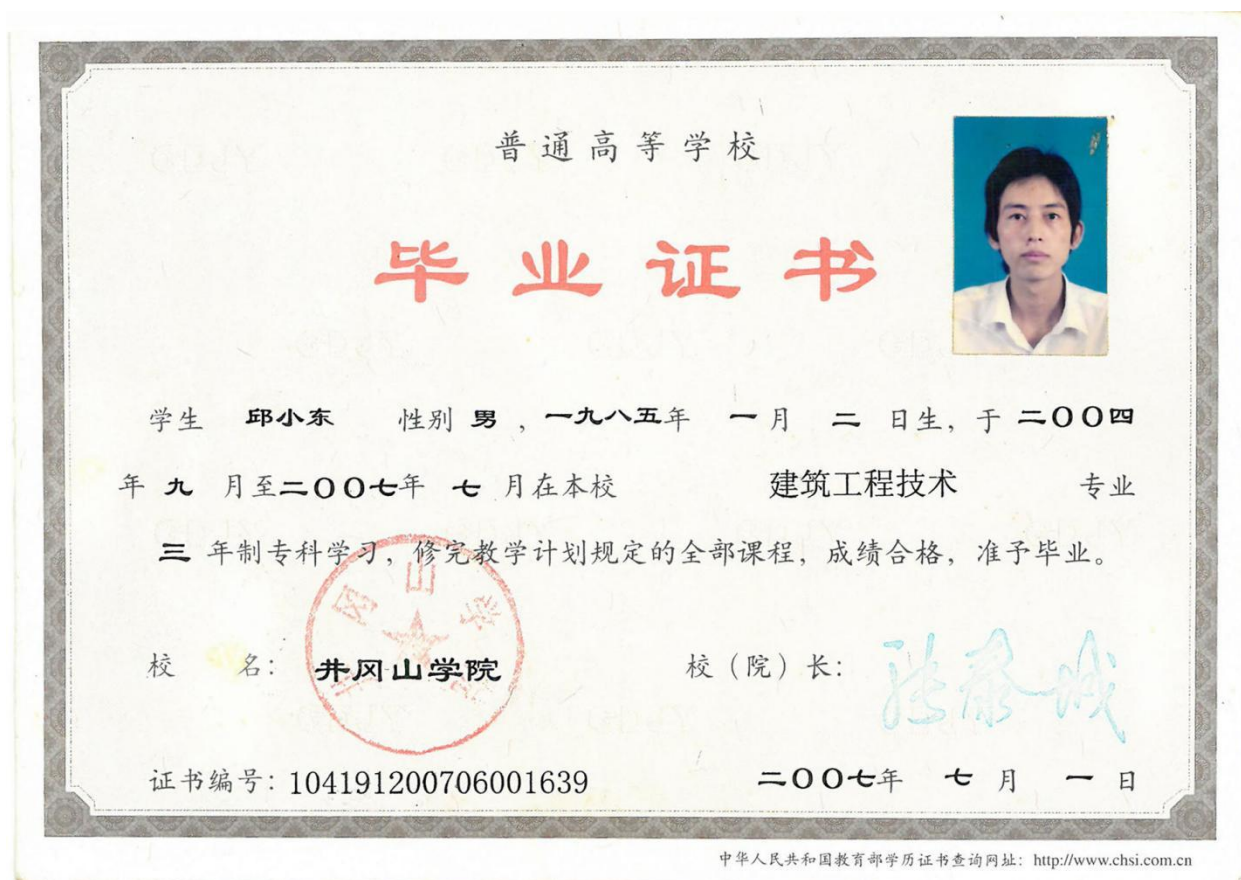 普通高等学校
毕业证书
学生 邱小东 性别 男，一九八五年 一月 二 日生，于 二〇〇四
年 九 月至二〇〇七年 七 月在本校 建筑工程技术 专业
三 年制专科学习，修完教学计划规定的全部课程，成绩合格，准予毕业。
井冈山学院
校 名： 井冈山学院 校（院）长： 张泰城
证书编号：104191200706001639 二〇〇七年 七 月 一 日
中华人民共和国教育部学历证书查询网址：http://www.chsi.com.cn